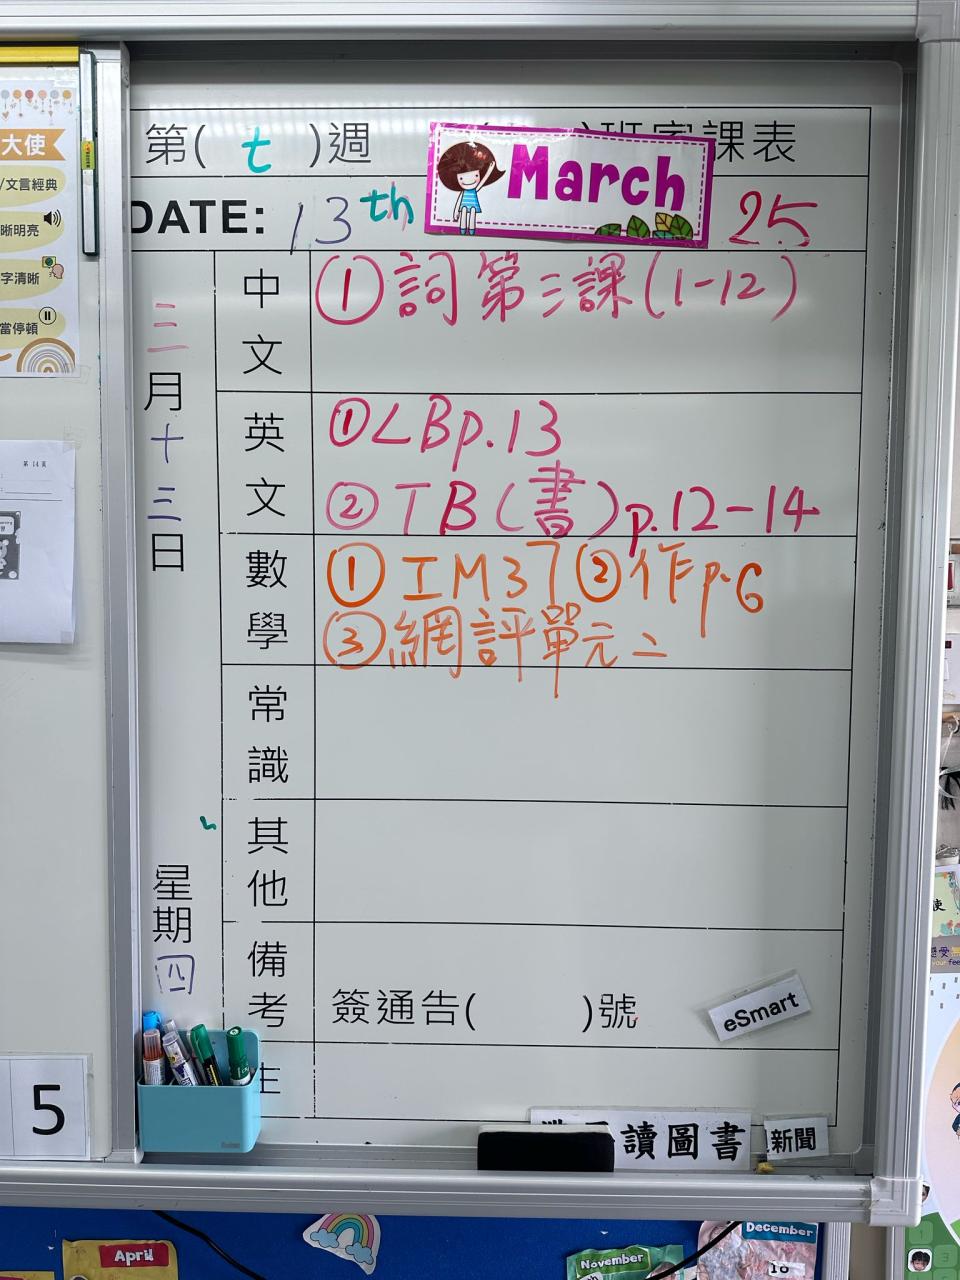 第(七)週
班家課表
March
DATE: 13th
25
三月十三日
星期四
中文
①詞第三課(1-12)
英文
①LBp.13
②TB(書)p.12-14
數學
①IM37②作p.6
③網評單元二
常識
其他
備考
簽通告( )號
eSmart
讀圖書
新聞
大使
/文言經典
晰明亮
字清晰
當停頓
第 14 頁
5
April
November
December